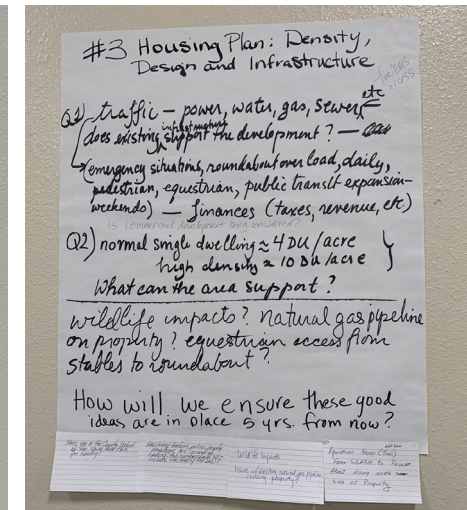 #3 Housing Plan: Density,
Design and Infrastructure
fire/EMS
access
Q1) traffic — power, water, gas, sewer, etc
does existing infrastructure support the development? —
(emergency situations, roundabout over load, daily,
pedestrian, equestrian, public transit expansion-
weekends) — finances (taxes, revenue, etc.)
Is commercial development being considered?
Q2) normal single dwelling ≈ 4 DU/acre
high density ≈ 10 DU/acre
What can the area support?
wildlife impacts? natural gas pipeline
on property? equestrian access from
stables to roundabout?
How will we ensure these good
ideas are in place 5 yrs. from now?
Wildlife Impacts
natural gas pipeline
crossing property?
Equestrian Access (Trail)
From Stables to
along north
side of Property